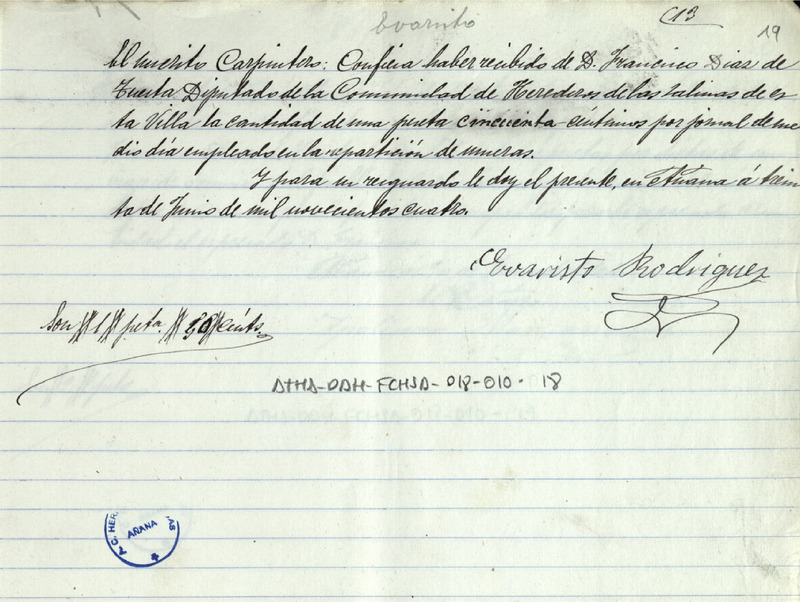 Evaristo
C13
19
El suscrito Carpintero: Confiesa haber recibido de D. Francisco Diaz de
Tuesta Diputado de la Comunidad de Herederos de las Salinas de es
ta Villa la cantidad de una peseta cincuenta céntimos por jornal de me
dio día empleado en la repartición de mueras.
Y para su resguardo le doy el presente, en Añana á trein
ta de Junio de mil novecientos cuatro.
Evaristo Rodriguez
Son 1 peta. 50 cénts.
ATHA-DAH-FCHSA-018-010-18
AÑANA